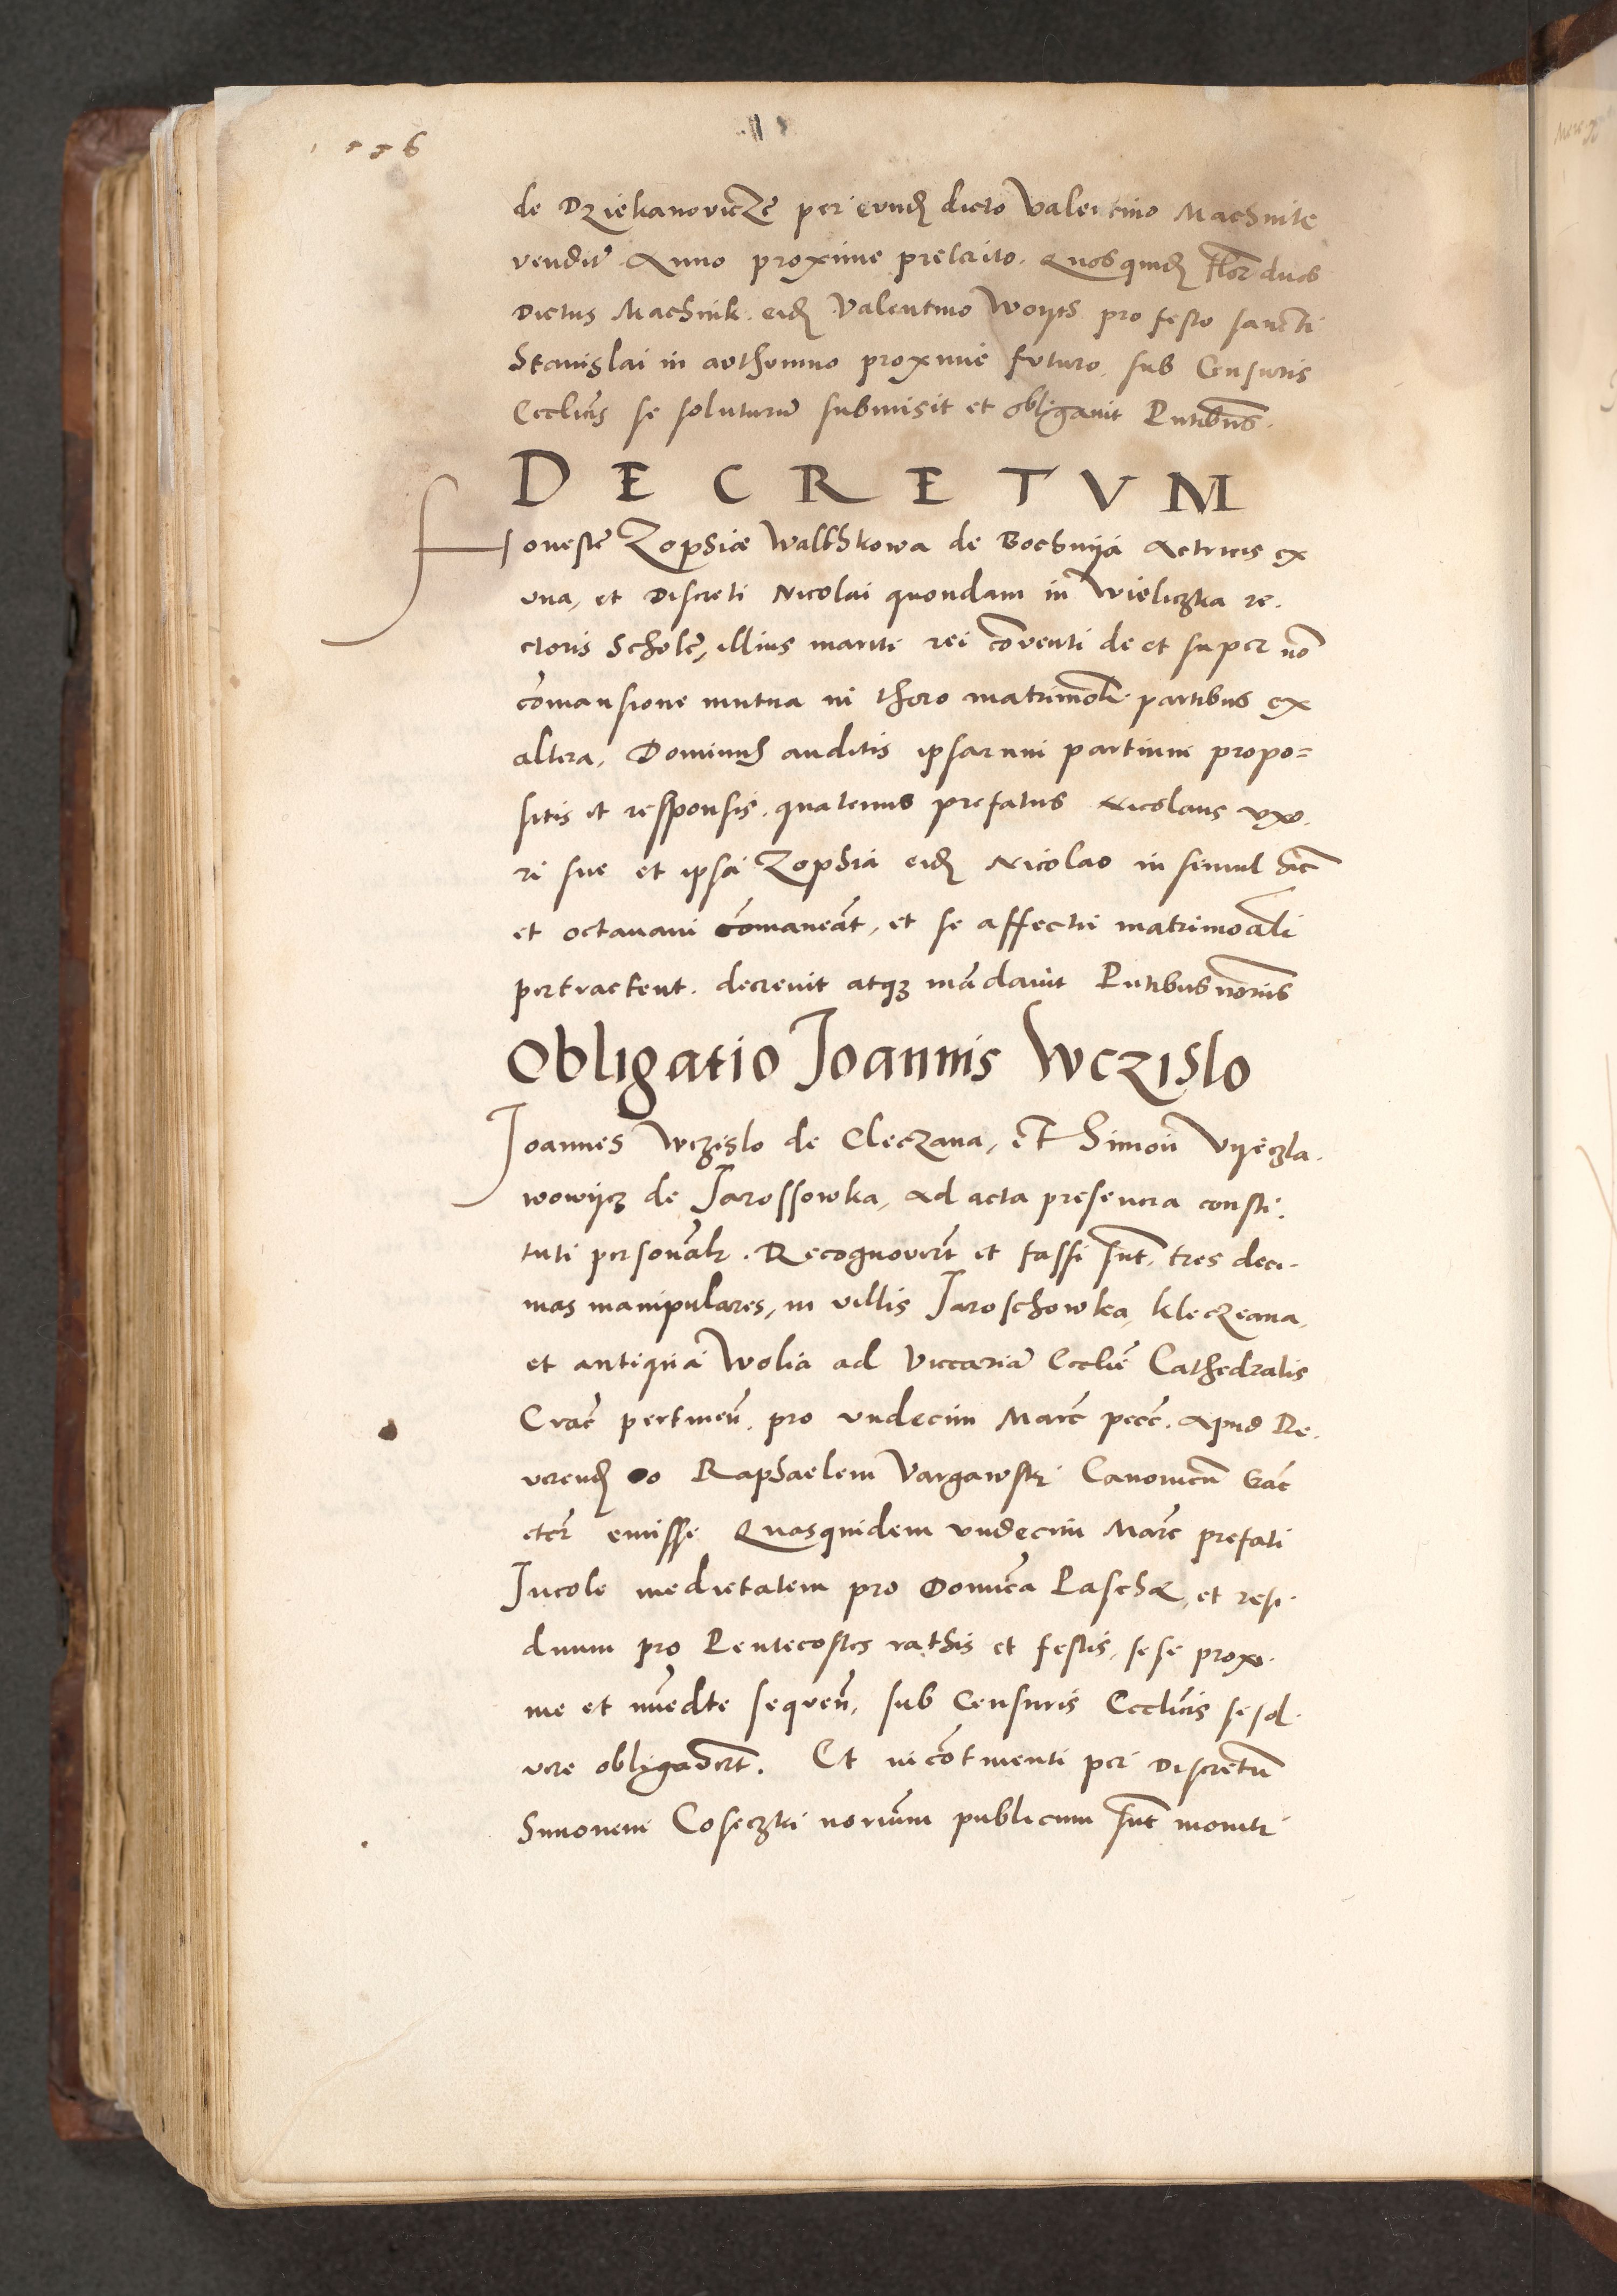 de Dziekanovicze per eund dicto Valentino Machnite
vendit Anno proxime preterito. Quos quid flor duos
Dictus Machnik eid Valentino Woyts pro festo sancti
Stanislai in authomno proxime futuro, sub Censuris
Ecclicis se soluturu submisit et obligavit Pntibus.
DECRETVM
Honeste Zophiæ Walkhkowa de Bochnya Actricis ex
vna, et Discreti Nicolai quondam in Wieliczka re.
ctoris Schole, illius mariti rei conventi de et super no
comansione mutua in thoro matrimoli partibus ex
altera, Dominus auditis ipsarum partium propo=
sitis et responsis. quatenus prefatus Nicolaus vxo.
ri sue et ipsa Zophia eid Nicolao in simul hinc
et octavam comaneat, et se affectu matrimoali
pertractent. decrevit atq mandavit Pntibus
Obligatio Joannis Wczislo
Joannes Wczislo de Cleczana, et Simon Vyeczla.
wowycz de Jarossowka, ad acta presencia consti.
tuti personalr. Recognovert et fassi sunt, tres deci.
mas manipulares, in villis Jaroschowka, kleczeana,
et antiqua Wolia ad Viccaria Ecclie Cathedralis
Crac pertinen. pro vndecim Marc pecc. apud Re.
verend do Raphaelem Vargawski Canonicu Gnc
etcr emisse Quasquidem vndecim Marc prefati
Incole medietatem pro Domica Paschæ, et resi.
duum pro Pentecostes rathis et festis, sese proxi.
me et immedte sequen, sub Censuris Ecclicis se sol.
vere obligavert. Et in continenti per Discretu
Simonem Coseczki norium publicum sunt moniti